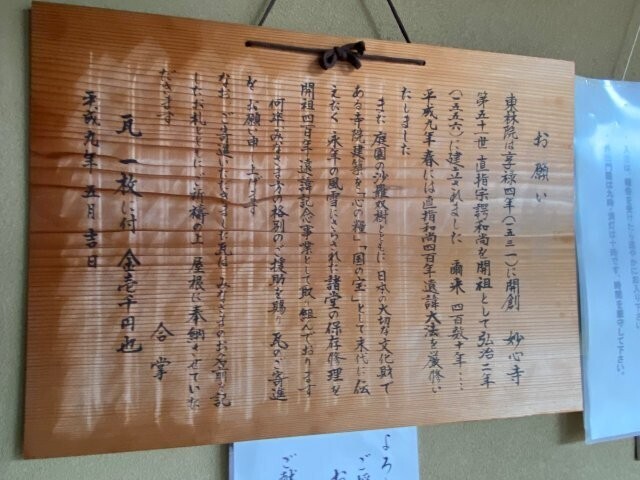 お願い
東林院は享禄四年(一五三一)に開創 妙心寺
第五十世 直指宗諤和尚を開祖として弘治二年
(一五五六)に建立されました 爾来、四百数十年……
平成九年春には直指和尚四百年遠諱大法を厳修い
たしました
また庭園の沙羅双樹とともに、日本の大切な文化財で
ある寺院建築を「心の糧」「国の宝」として末代に伝
えたく 永年の風雪にさらされた諸堂の保存修理を
開祖四百年遠諱記念事業として取り組んでおります
何卒 みなさま方の格別のご援助を賜り 瓦のご寄進
をお願い申し上げます
なお、ご寄進いただきました瓦は みなさまのお名前を記
したお札とともに、祈祷の上 屋根に奉納させていた
だきます 合掌
瓦 一枚に付 金壱千円也
平成九年 五月 吉日
よろ
ご
お
ご